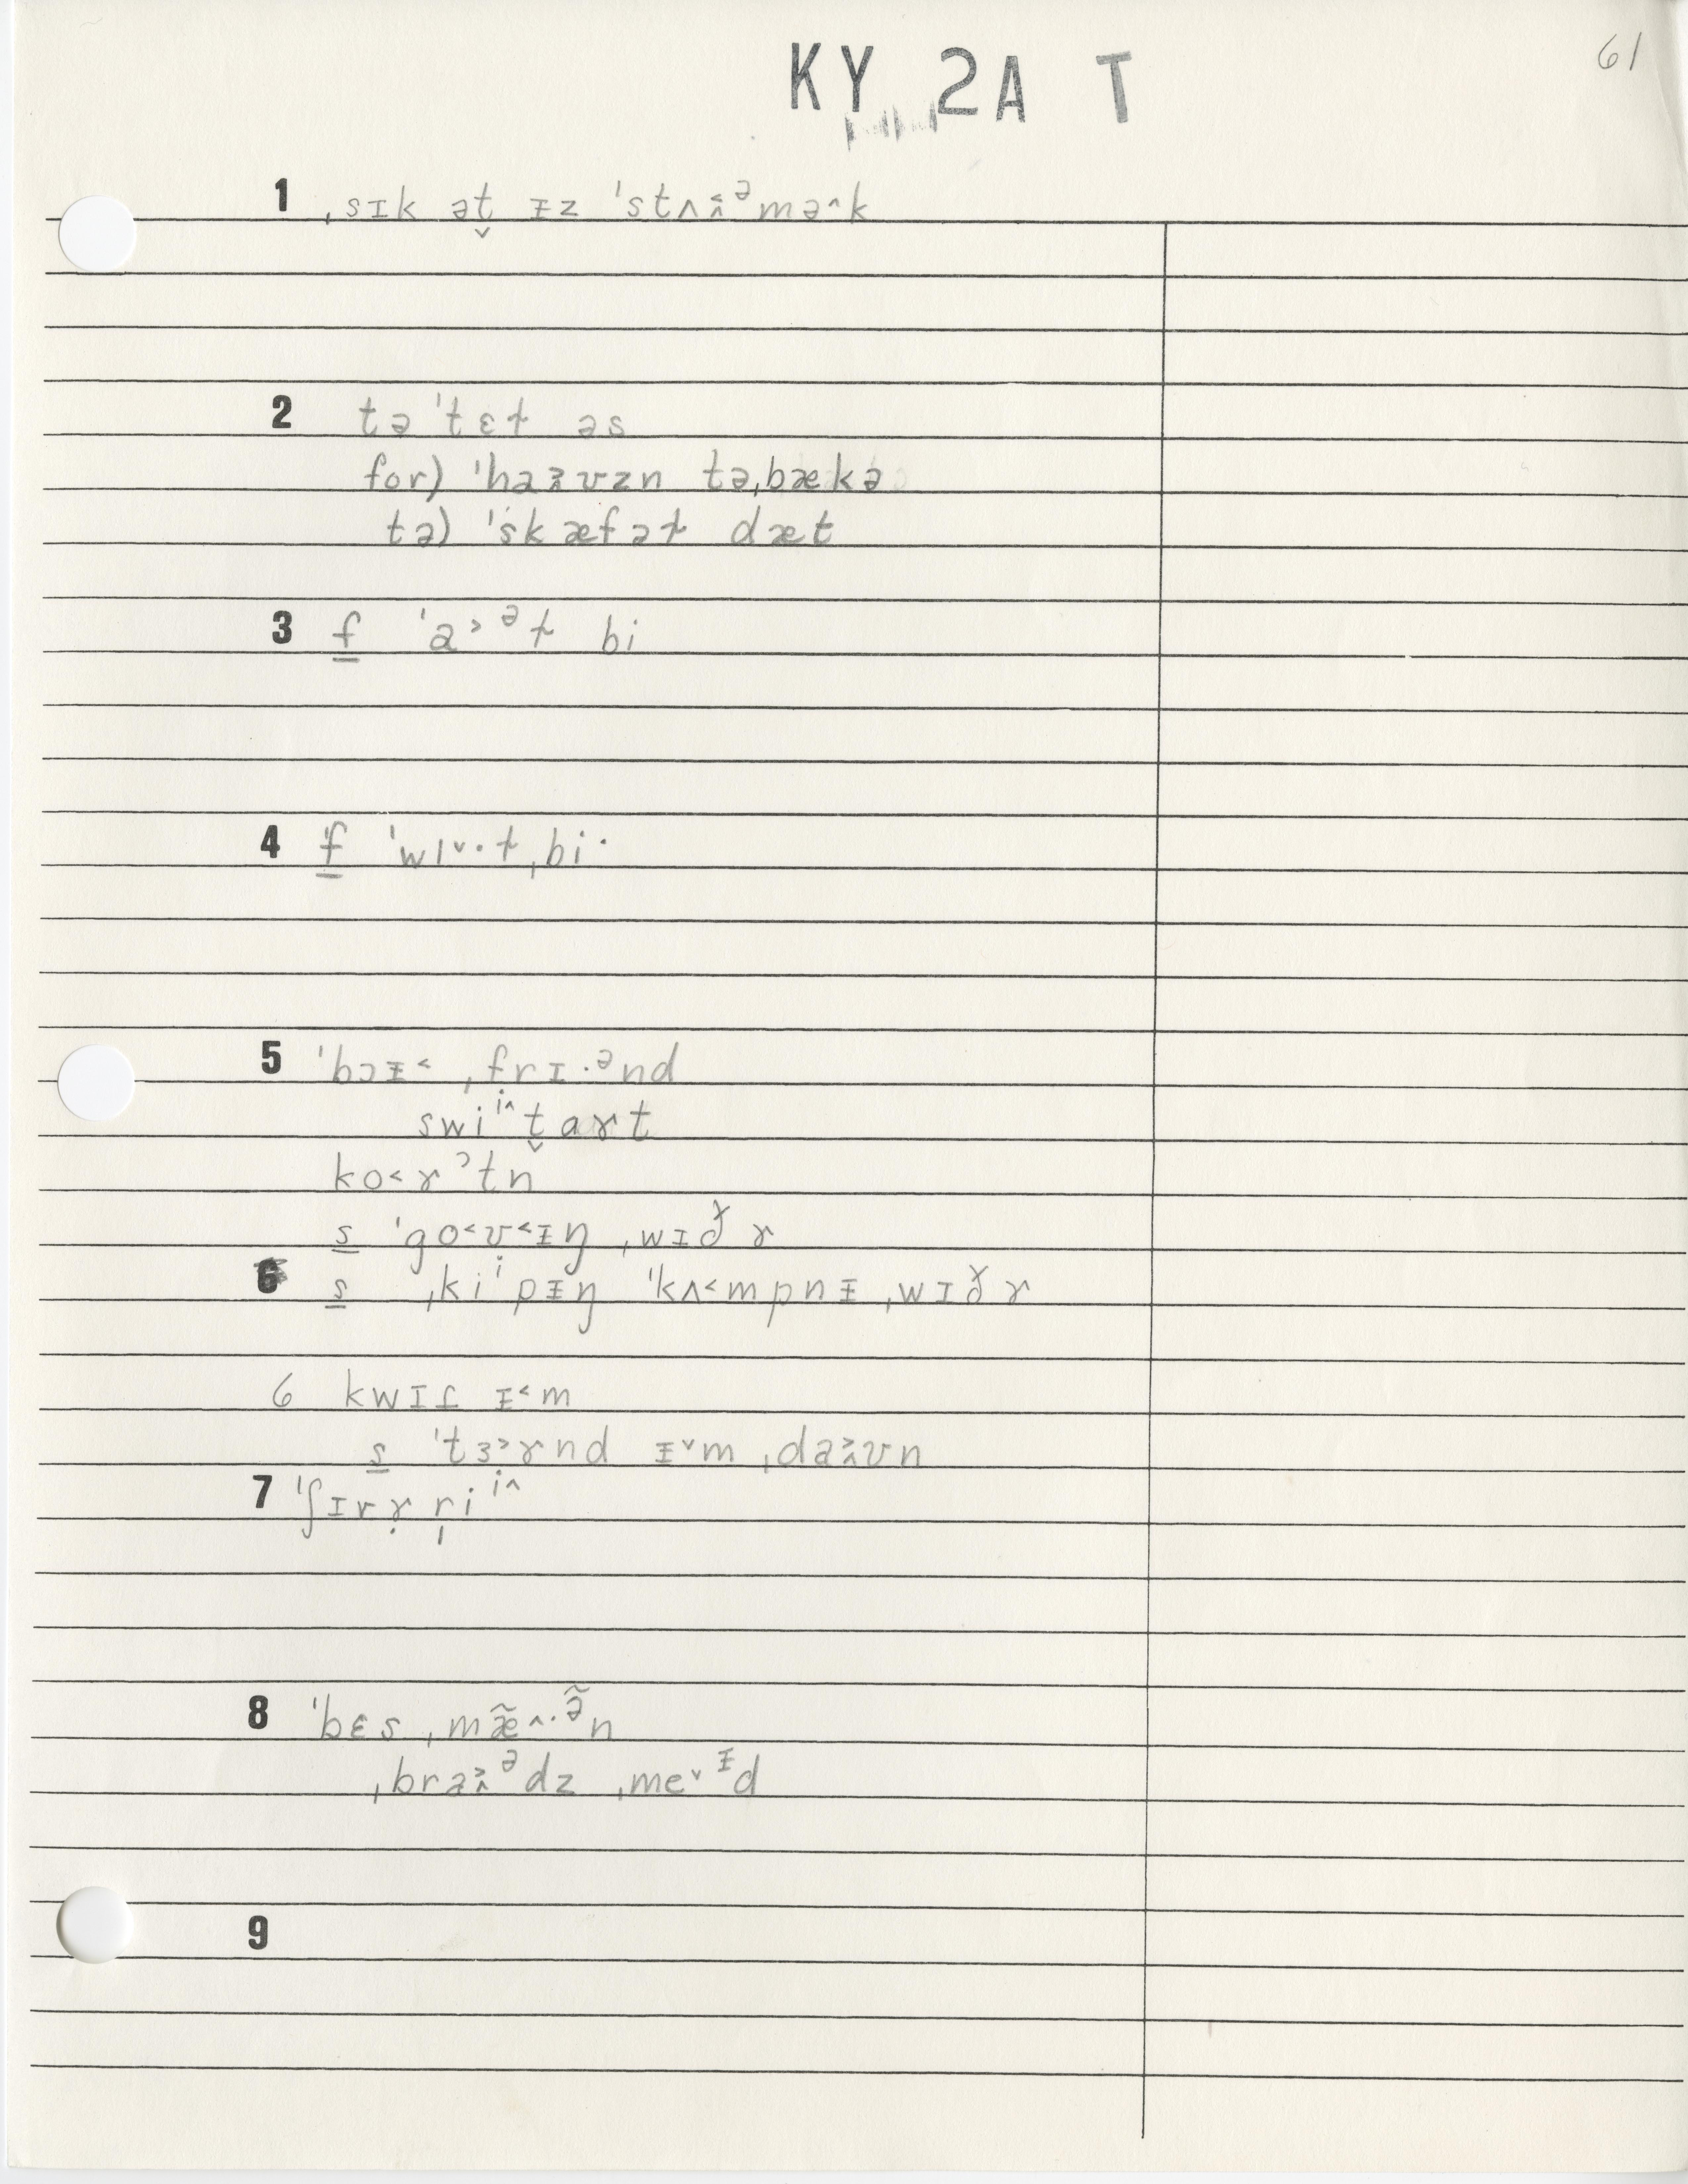 61
KY 2A T
1 ˌsɪk ət̬ ɪz ˈstʌᵊmə^k
2 tə ˈtɛɫ əs
for) ˈhaʊzn təˌbækə
tə) ˈskæfəɫ dæt
3 f̲ ˈa˃ᵊɫ bi
4 f̲ ˈwɪ˅·ɫˌbi·
5 ˈbɔɪ˂ ˌfrɪ·ᵊnd
swiⁱ^t̬ɑɤt
ko˂ɤˀtn
s̲ ˈgo˂ʊ˂ɨŋ ˌwɪðɤ
6 s̲ ˌkiⁱpɨŋ ˈkʌ˂mpnɨ ˌwɪðɤ
6 kwɪf ɨ˂m
s̲ ˈtɜ˃ɤnd ɨ˅m ˌdaʊn
7 ˈʃɪvɤ̣r̩iⁱ^
8 ˈbɛs ˌmæ̃^·ᵊ̃n
ˌbraᵊdz ˌme˅ᶤd
9